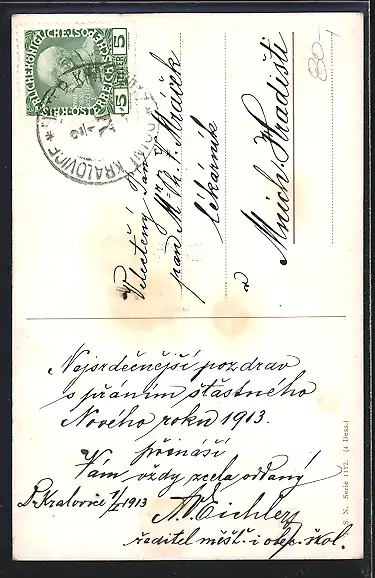 5 HELLER 5
KRALOVICE
80-
Velectěný Pan
pan Mr. Ph. F. Mráček
lékárník
v
Mnich. Hradišti
Nejsrdečnější pozdrav
s přáním šťastného
Nového roku 1913.
přináší
Vám vždy zcela oddaný
D. Kralovice 1/I 1913 A. Eichler
ředitel měšť. i obec. škol.
S. N. Serie 1112. (4 Dess.)